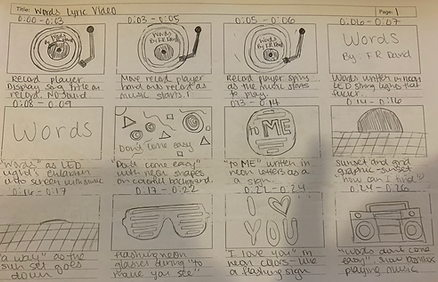 Title: Words Lyric Video
Page: 1
0:00 - 0:03
0:03 - 0:05
0:05 - 0:06
0:06 - 0:07
Words
By F.R. David
Words
By F.R. David
Words
By: F.R. David
Record player
Display song title on
record. No sound
Move record player
hand onto record as
music starts.
Record player spins
as the music starts
to play.
Words written in neon
LED sign lights that
flicker
0:08 - 0:09
0:13 - 0:14
0:14 - 0:16
Words
Don't come easy
TO ME
"Words" as LED
lights
into screen with music
"Don't come easy"
with neon shapes
on colorful background.
"to ME" written in
neon letters as a
sign
sunset and grid
graphic - sunset
how can I find
0:16 - 0:17
0:17 - 0:22
0:22 - 0:24
0:24 - 0:26
I ♡
YOU
"a way" as the
sun set goes
down
flashing neon
glasses during "to
make you see"
"I love you" in
neon colors - like
a flashing sign
"words don't come
easy" show boombox
playing music